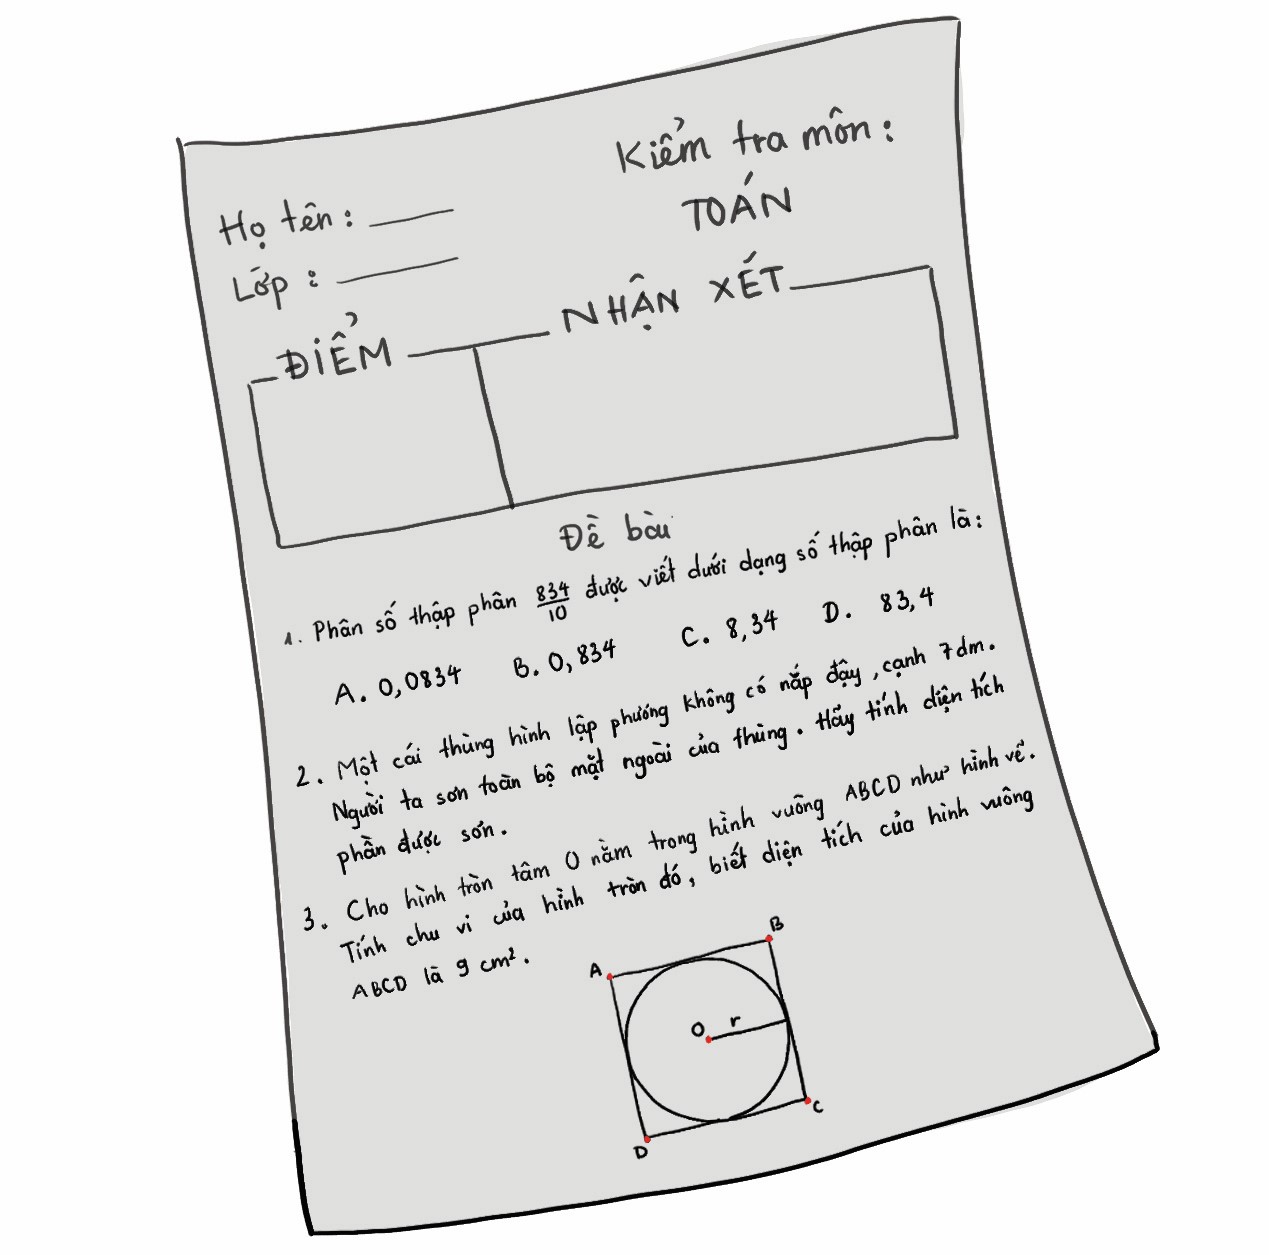 Kiểm tra môn:
TOÁN
Họ tên:
Lớp:
ĐIỂM
NHẬN XÉT
Đề bài
1. Phân số thập phân 834/10 được viết dưới dạng số thập phân là:
A. 0,0834 B. 0,834 C. 8,34 D. 83,4
2. Một cái thùng hình lập phương không có nắp đậy, cạnh 7dm.
Người ta sơn toàn bộ mặt ngoài của thùng. Hãy tính diện tích
phần được sơn.
3. Cho hình tròn tâm O nằm trong hình vuông ABCD như hình vẽ.
Tính chu vi của hình tròn đó, biết diện tích của hình vuông
ABCD là 9 cm².
A
B
O r
C
D